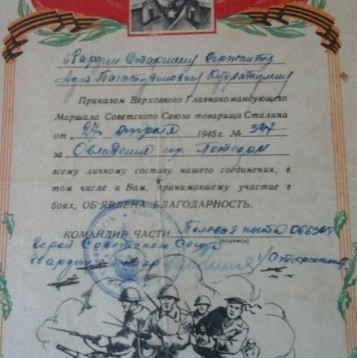 Гвардии Старшему Сержанту
Приказом Верховного Главнокомандующего
Маршала Советского Союза товарища Сталина
от 27 апреля 1945 г. № 347
за Овладение гор. Потсдам
всему личному составу нашего соединения, в
том числе и Вам, принимавшему участие в
боях, ОБ'ЯВЛЕНА БЛАГОДАРНОСТЬ.
КОМАНДИР ЧАСТИ Полевая почта
(подпись)
Герой Советского Союза
Гвардии